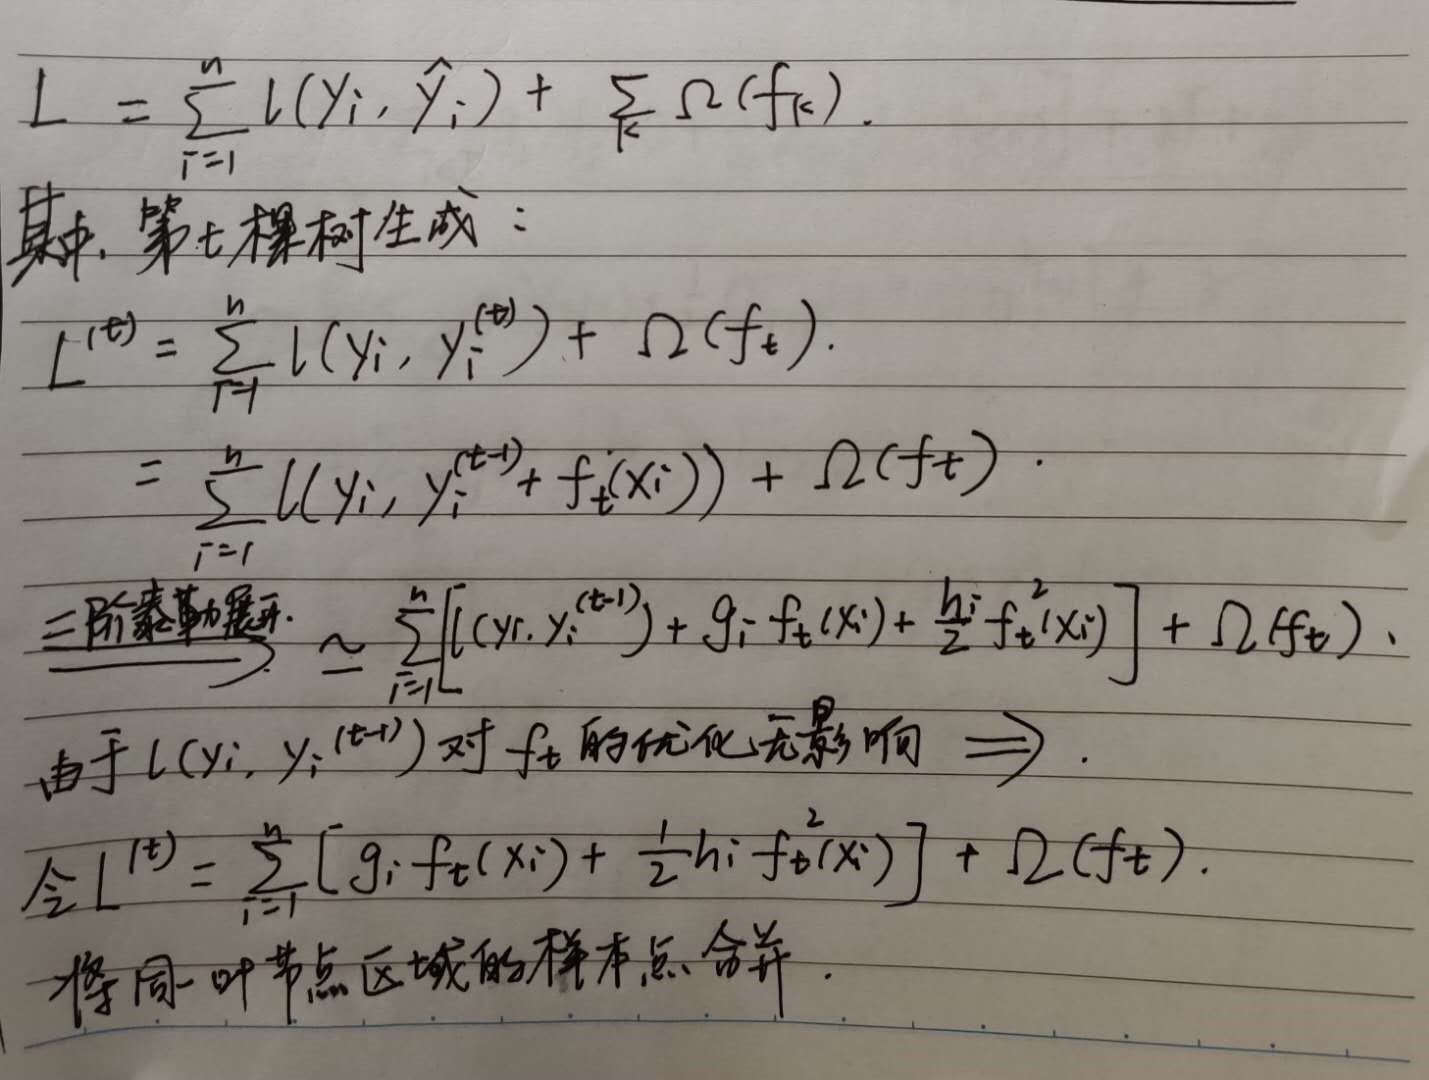 L = \sum_{i=1}^{n} l(y_i, \hat{y}_i) + \sum_k Ω(f_k).
其中, 第t棵树生成:
L^{(t)} = \sum_{i=1}^{n} l(y_i, y_i^{(t)}) + Ω(f_t).
= \sum_{i=1}^{n} l(y_i, y_i^{(t-1)} + f_t(x_i)) + Ω(f_t).
二阶泰勒展开. ≃ \sum_{i=1}^{n} [l(y_i, y_i^{(t-1)}) + g_i f_t(x_i) + \frac{h_i}{2} f_t^2(x_i)] + Ω(f_t).
由于 l(y_i, y_i^{(t-1)}) 对 f_t 的优化无影响 ⇒.
令 L^{(t)} = \sum_{i=1}^{n} [g_i f_t(x_i) + \frac{1}{2} h_i f_t^2(x_i)] + Ω(f_t).
将同一叶节点区域的样本点合并.